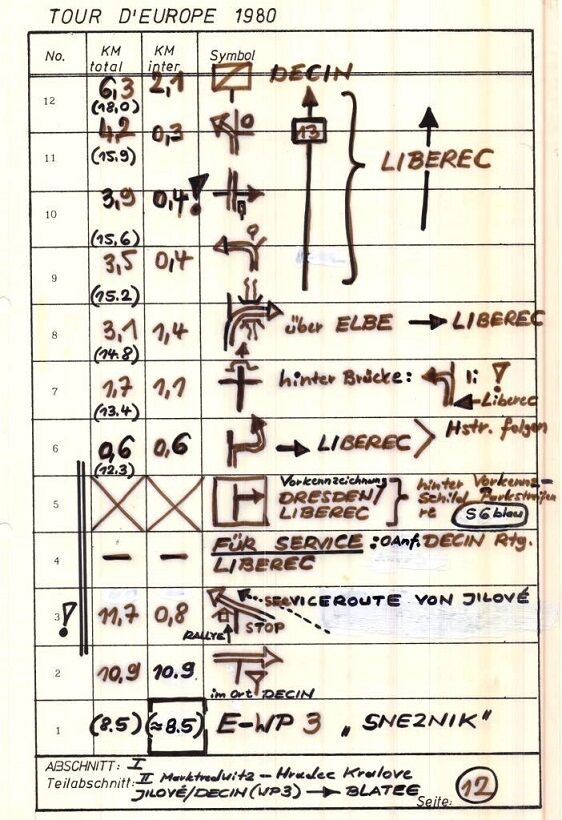 TOUR D'EUROPE 1980
No. KM total KM inter Symbol
12 6,3 2,1 DECIN
(18,0)
11 4,2 0,3 13
(15,9) LIBEREC
10 3,9 0,4 !
(15,6)
9 3,5 0,4
(15.2)
8 3,1 1,4 über ELBE → LIBEREC
(14.8)
7 1,7 1,1 hinter Brücke: li !
(13.4) Liberec
6 0,6 0,6 → LIBEREC > Hstr. folgen
(12.3)
5 Vorkennzeichnung DRESDEN/ LIBEREC } hinter Vorkennz.-Schild Parkstreifen re S6 blau
4 — — FÜR SERVICE: 0 Anf. DECIN Rtg. LIBEREC
3 ! 11,7 0,8 SERVICEROUTE VON JILOVÉ
RALLYE STOP
2 10,9 10.9 im Ort DECIN
1 (8.5) (≈8.5) E-WP 3 „SNEZNIK"
ABSCHNITT: I
Teilabschnitt: II Marktredwitz – Hradec Kralove
JILOVÉ/DECIN (WP3) → BLATEE
Seite: 12